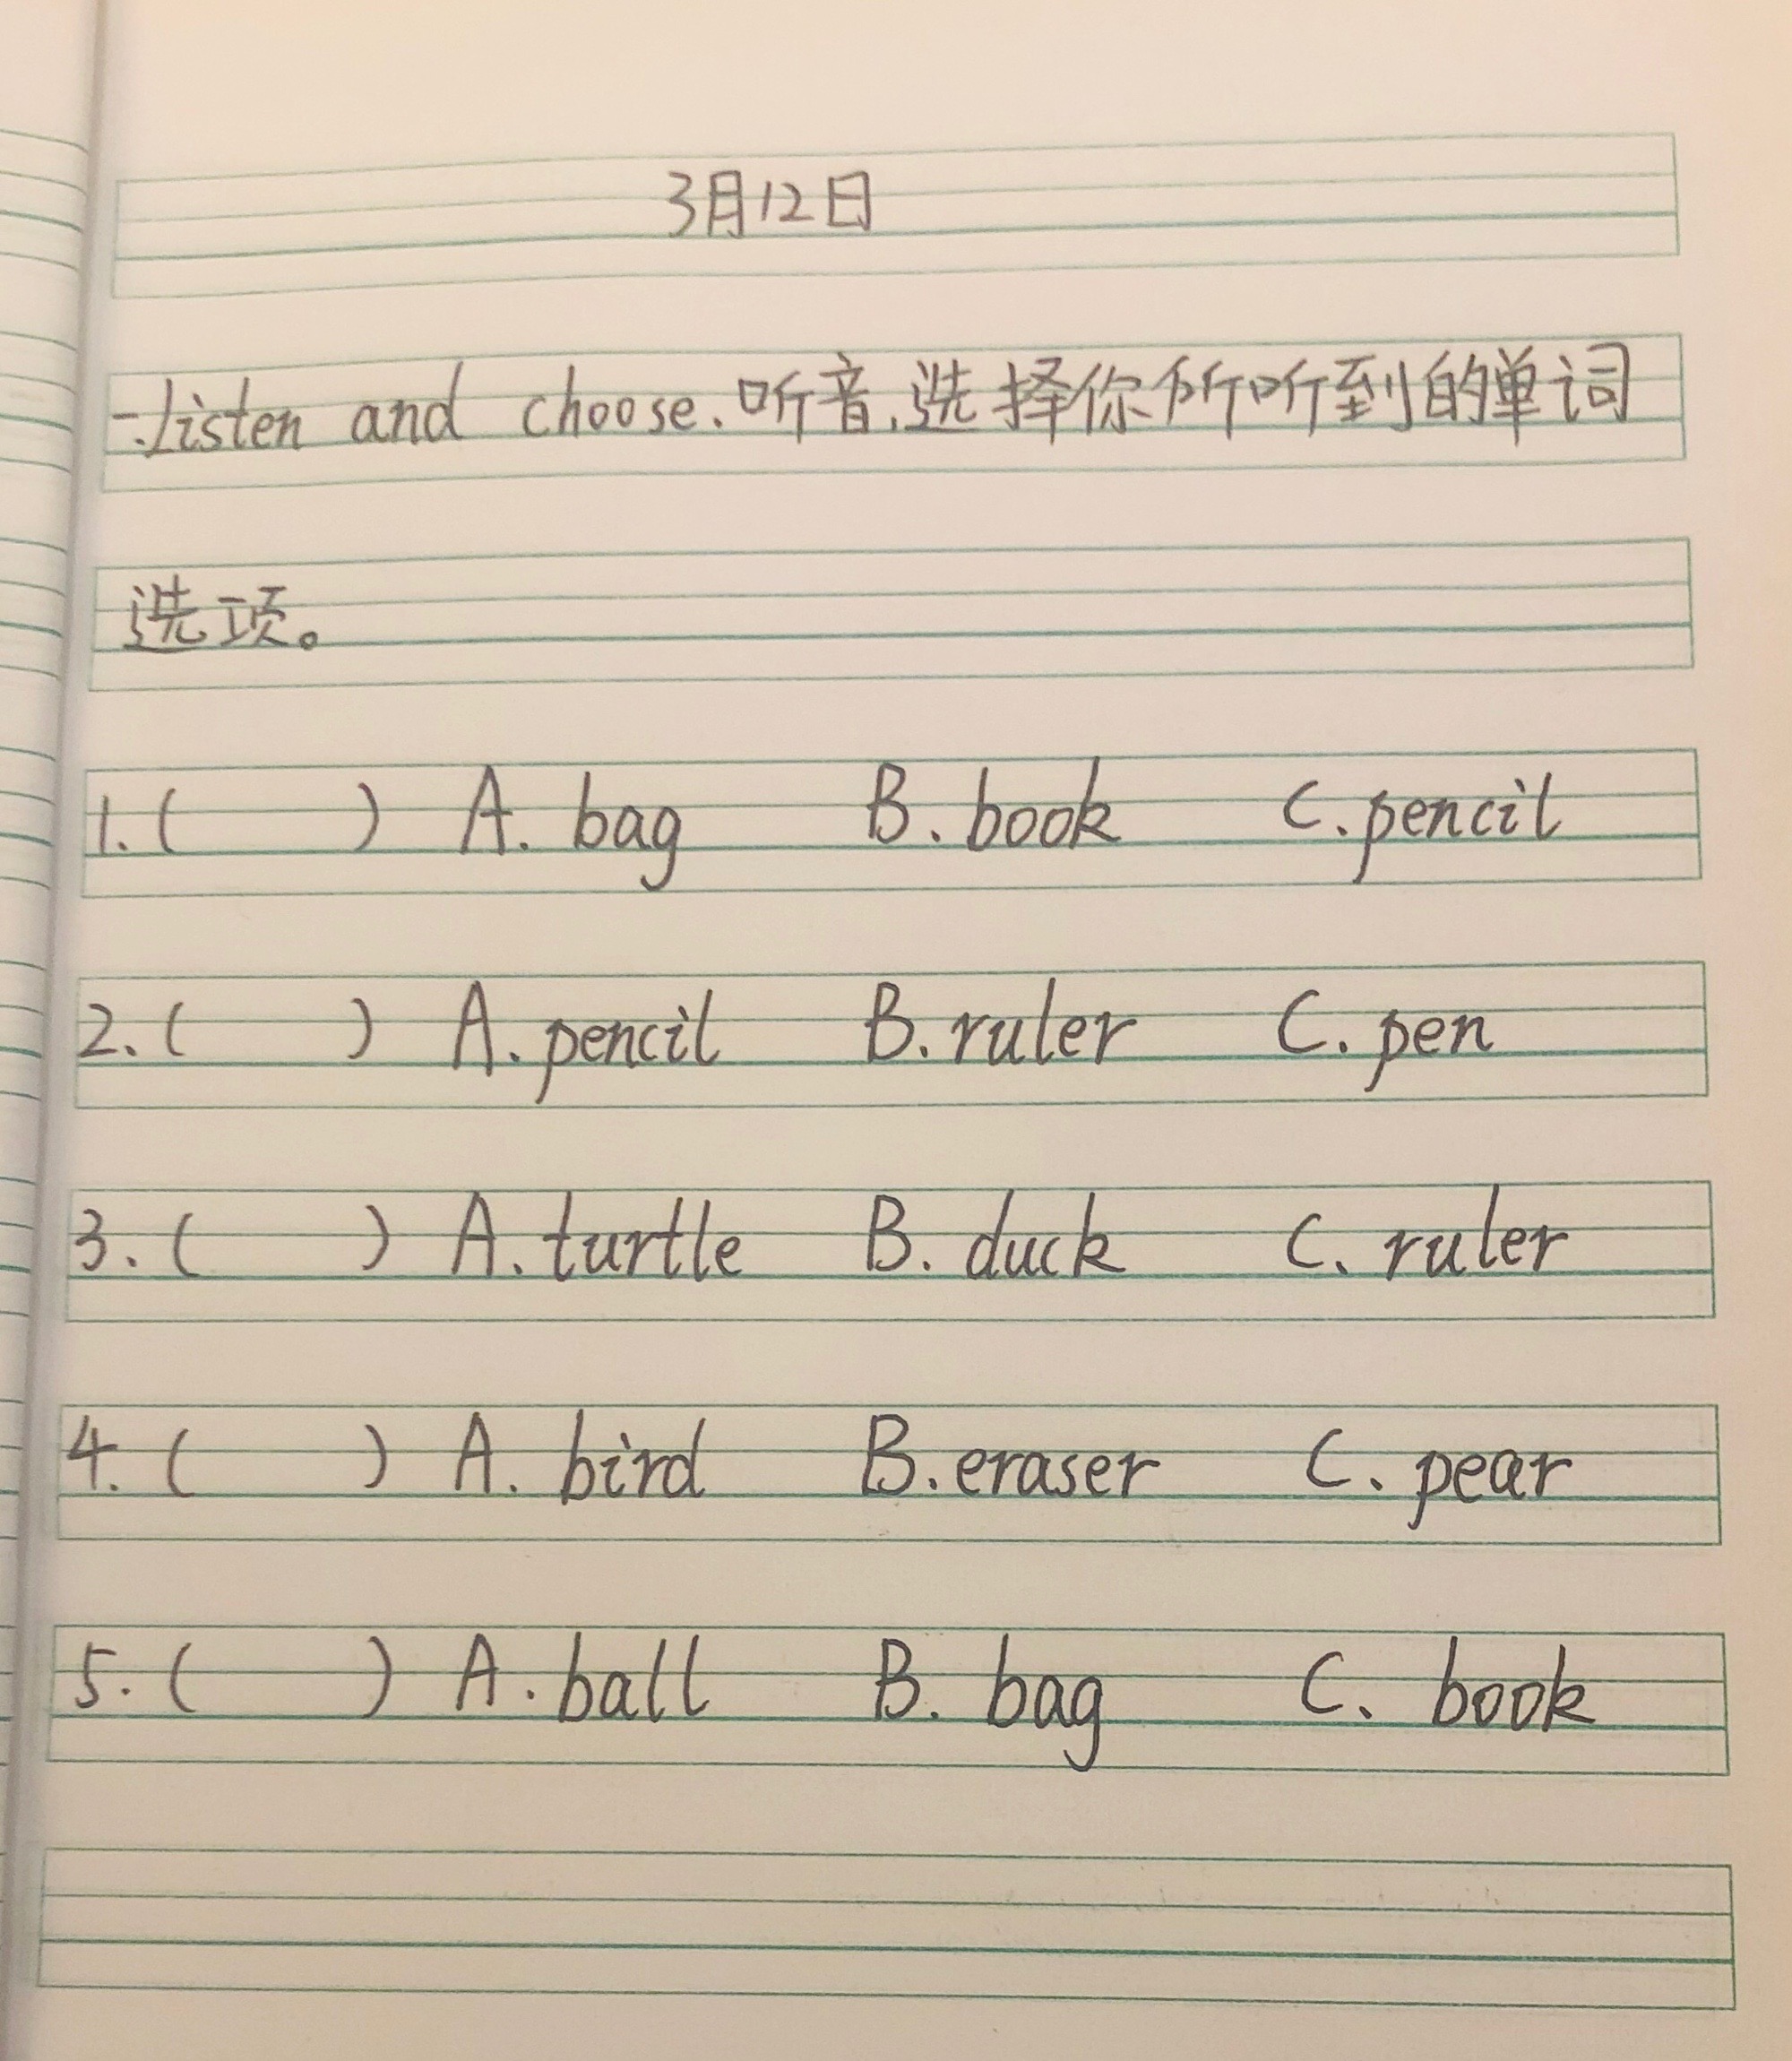 3月12日
一.listen and choose.听音,选择你所听到的单词
选项。
1.( ) A. bag B. book C. pencil
2.( ) A. pencil B. ruler C. pen
3.( ) A. turtle B. duck C. ruler
4.( ) A. bird B. eraser C. pear
5.( ) A. ball B. bag C. book